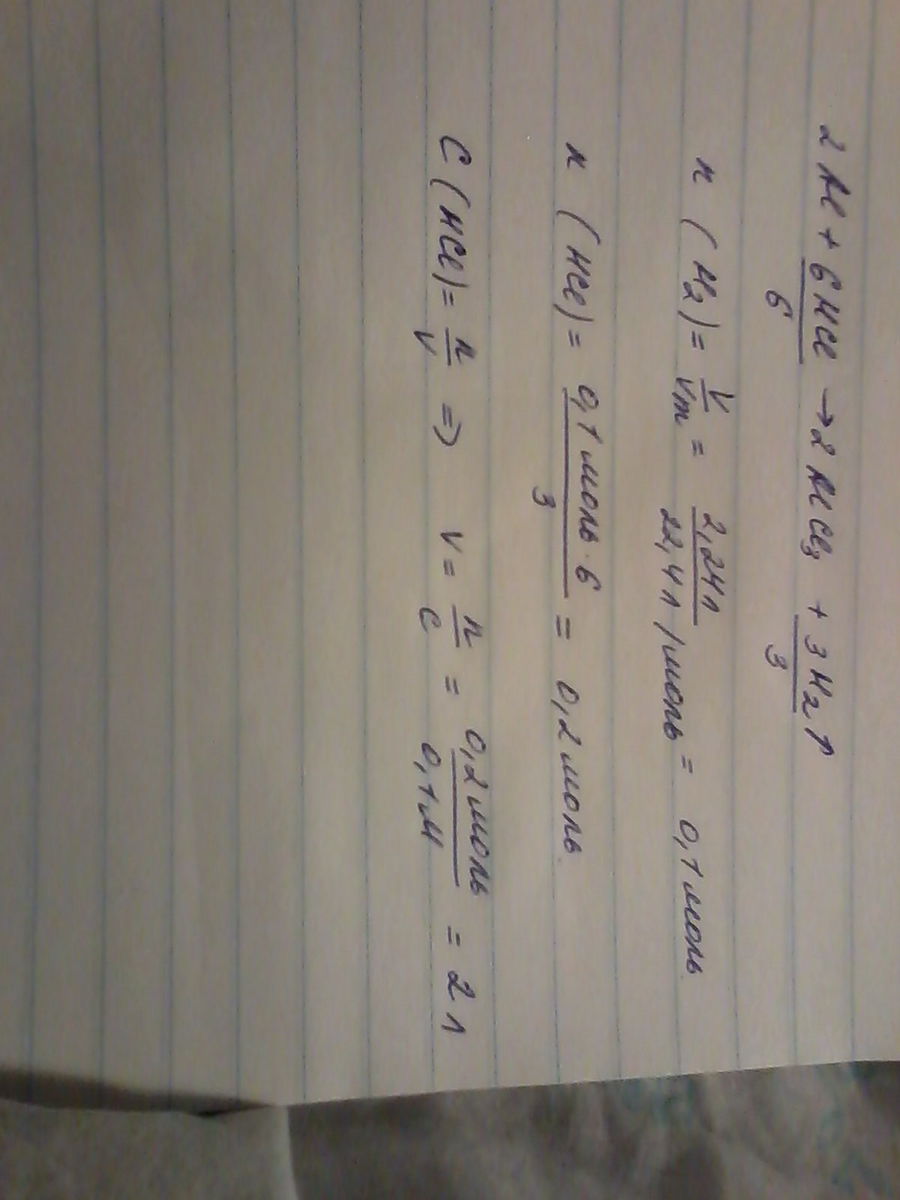 2 Al + 6HCl → 2 AlCl₃ + 3H₂↑
6 3
n (H₂) = V/Vm = 2,24л / 22,4л/моль = 0,1 моль
n (HCl) = 0,1 моль · 6 / 3 = 0,2 моль.
C (HCl) = n/V => V = n/C = 0,2 моль / 0,1 М = 2 л